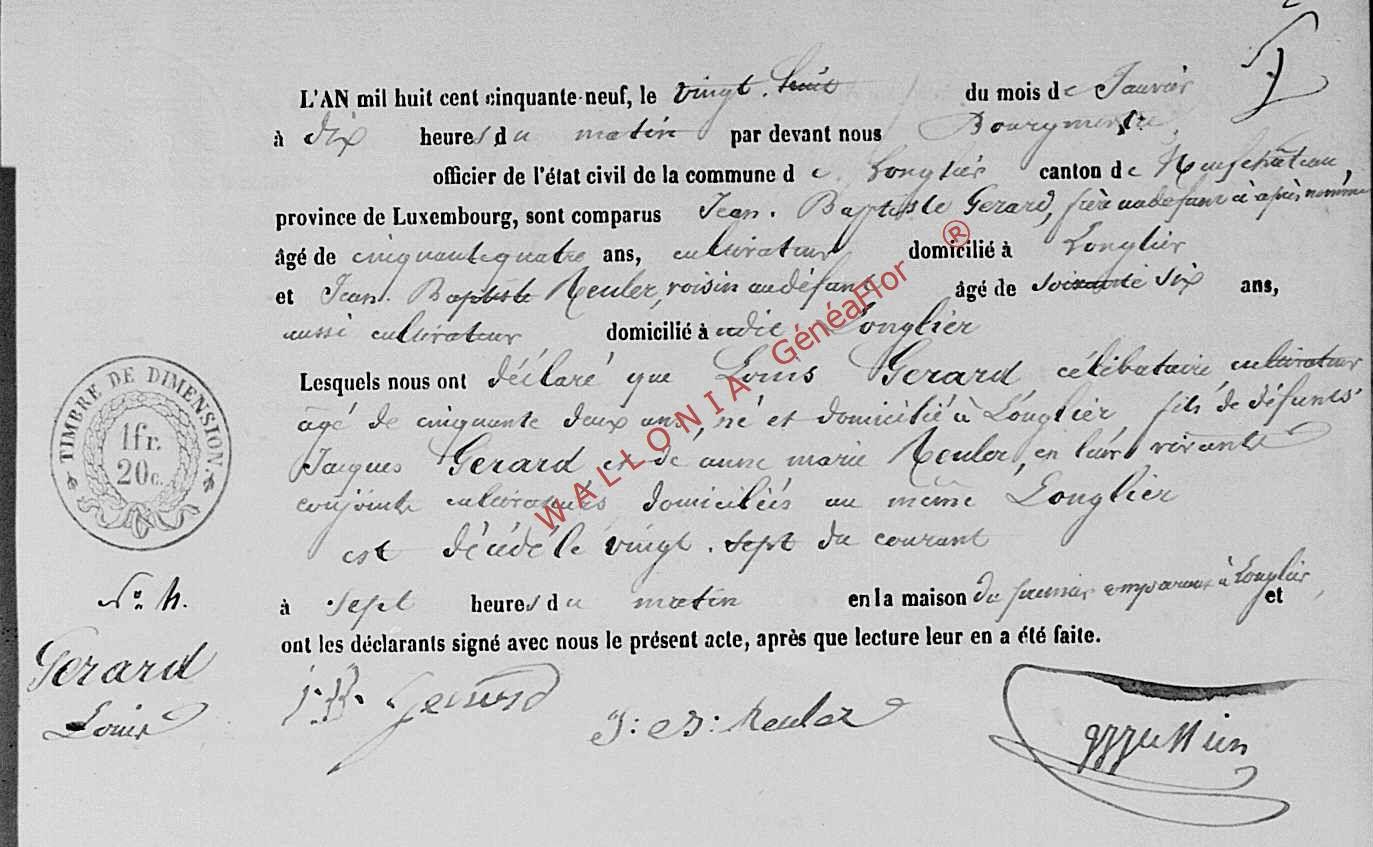 L'AN mil huit cent cinquante-neuf, le vingt-huit du mois de Janvier
à dix heures du matin par devant nous Bourgmestre,
officier de l'état civil de la commune de Longlier canton de Neufchâteau,
province de Luxembourg, sont comparus Jean-Baptiste Gerard, frère au défunt ci après nommé
âgé de cinquante quatre ans, cultivateur domicilié à Longlier
et Jean-Baptiste Reuler, voisin au défunt âgé de soixante six ans,
aussi cultivateur domicilié à udit Longlier
Lesquels nous ont déclaré que Louis Gerard, célibataire cultivateur
âgé de cinquante deux ans, né et domicilié à Longlier, fils de défunts
Jacques Gerard et de anne marie Reuler, en leur vivante
conjoints cultivateurs domiciliés au même Longlier
est décédé le vingt-sept du courant
à sept heures du matin en la maison du premier comparant à Longlier, et
ont les déclarants signé avec nous le présent acte, après que lecture leur en a été faite.
TIMBRE DE DIMENSION.
1 fr.
20 c.
No 4.
Gerard
Louis
J. B. Gerard
J: B: Reuler
WALLONIA GénéaFlor ®